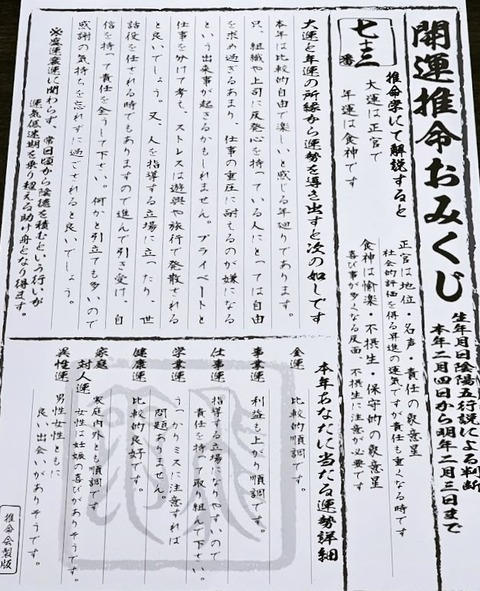 開運推命おみくじ
生年月日陰陽五行説による判断
本年二月四日から明年二月三日まで
七十三番
推命学にて解説すると
大運は正官で
年運は食神です
正官は地位・名声・責任の象意星
社会的評価を得る昇進の運気ですが責任も重くなる時です
食神は愉楽・不摂生・保守的の象意星
喜び事が多くなる反面、不摂生に注意が必要です
大運と年運の所縁から運勢を導き出すと次の如しです
本年は比較的自由で楽しいと感じる年廻りであります。
只、組織や上司に反発心を持っている人にとっては自由
を求め過ぎるあまり、仕事の重圧に耐てるのが嫌になる
という出来事が起きるかもしれません。プライベートと
仕事を分けて考え、ストレスは遊興や旅行で発散される
と良いでしょう。又、人を指導する立場に立ったり、世
話役を任される時でもありますので進んで引き受け、自
信を持って責任を全うして下さい。何かと引立ても多いので
感謝の気持ちを忘れずに過ごされると良いでしょう。
※盛運衰運に関わらず、常日頃から陰徳を積むという行いが
運気低迷期を乗り越える助け舟となり得ます。
本年あなたに当たる運勢詳細
金運
比較的順調です。
事業運
利益も上がり順調です。
仕事運
指導する立場になりやすいので
責任を持って取り組んで下さい。
学業運
うっかりミスに注意すれば
問題ありません。
健康運
比較的良好です。
家庭
対人運
家庭内外とも順調です
女性は妊娠の喜びがありそうです。
異性運
男性女性ともに
良い出会いがありそうです。
推命会製版